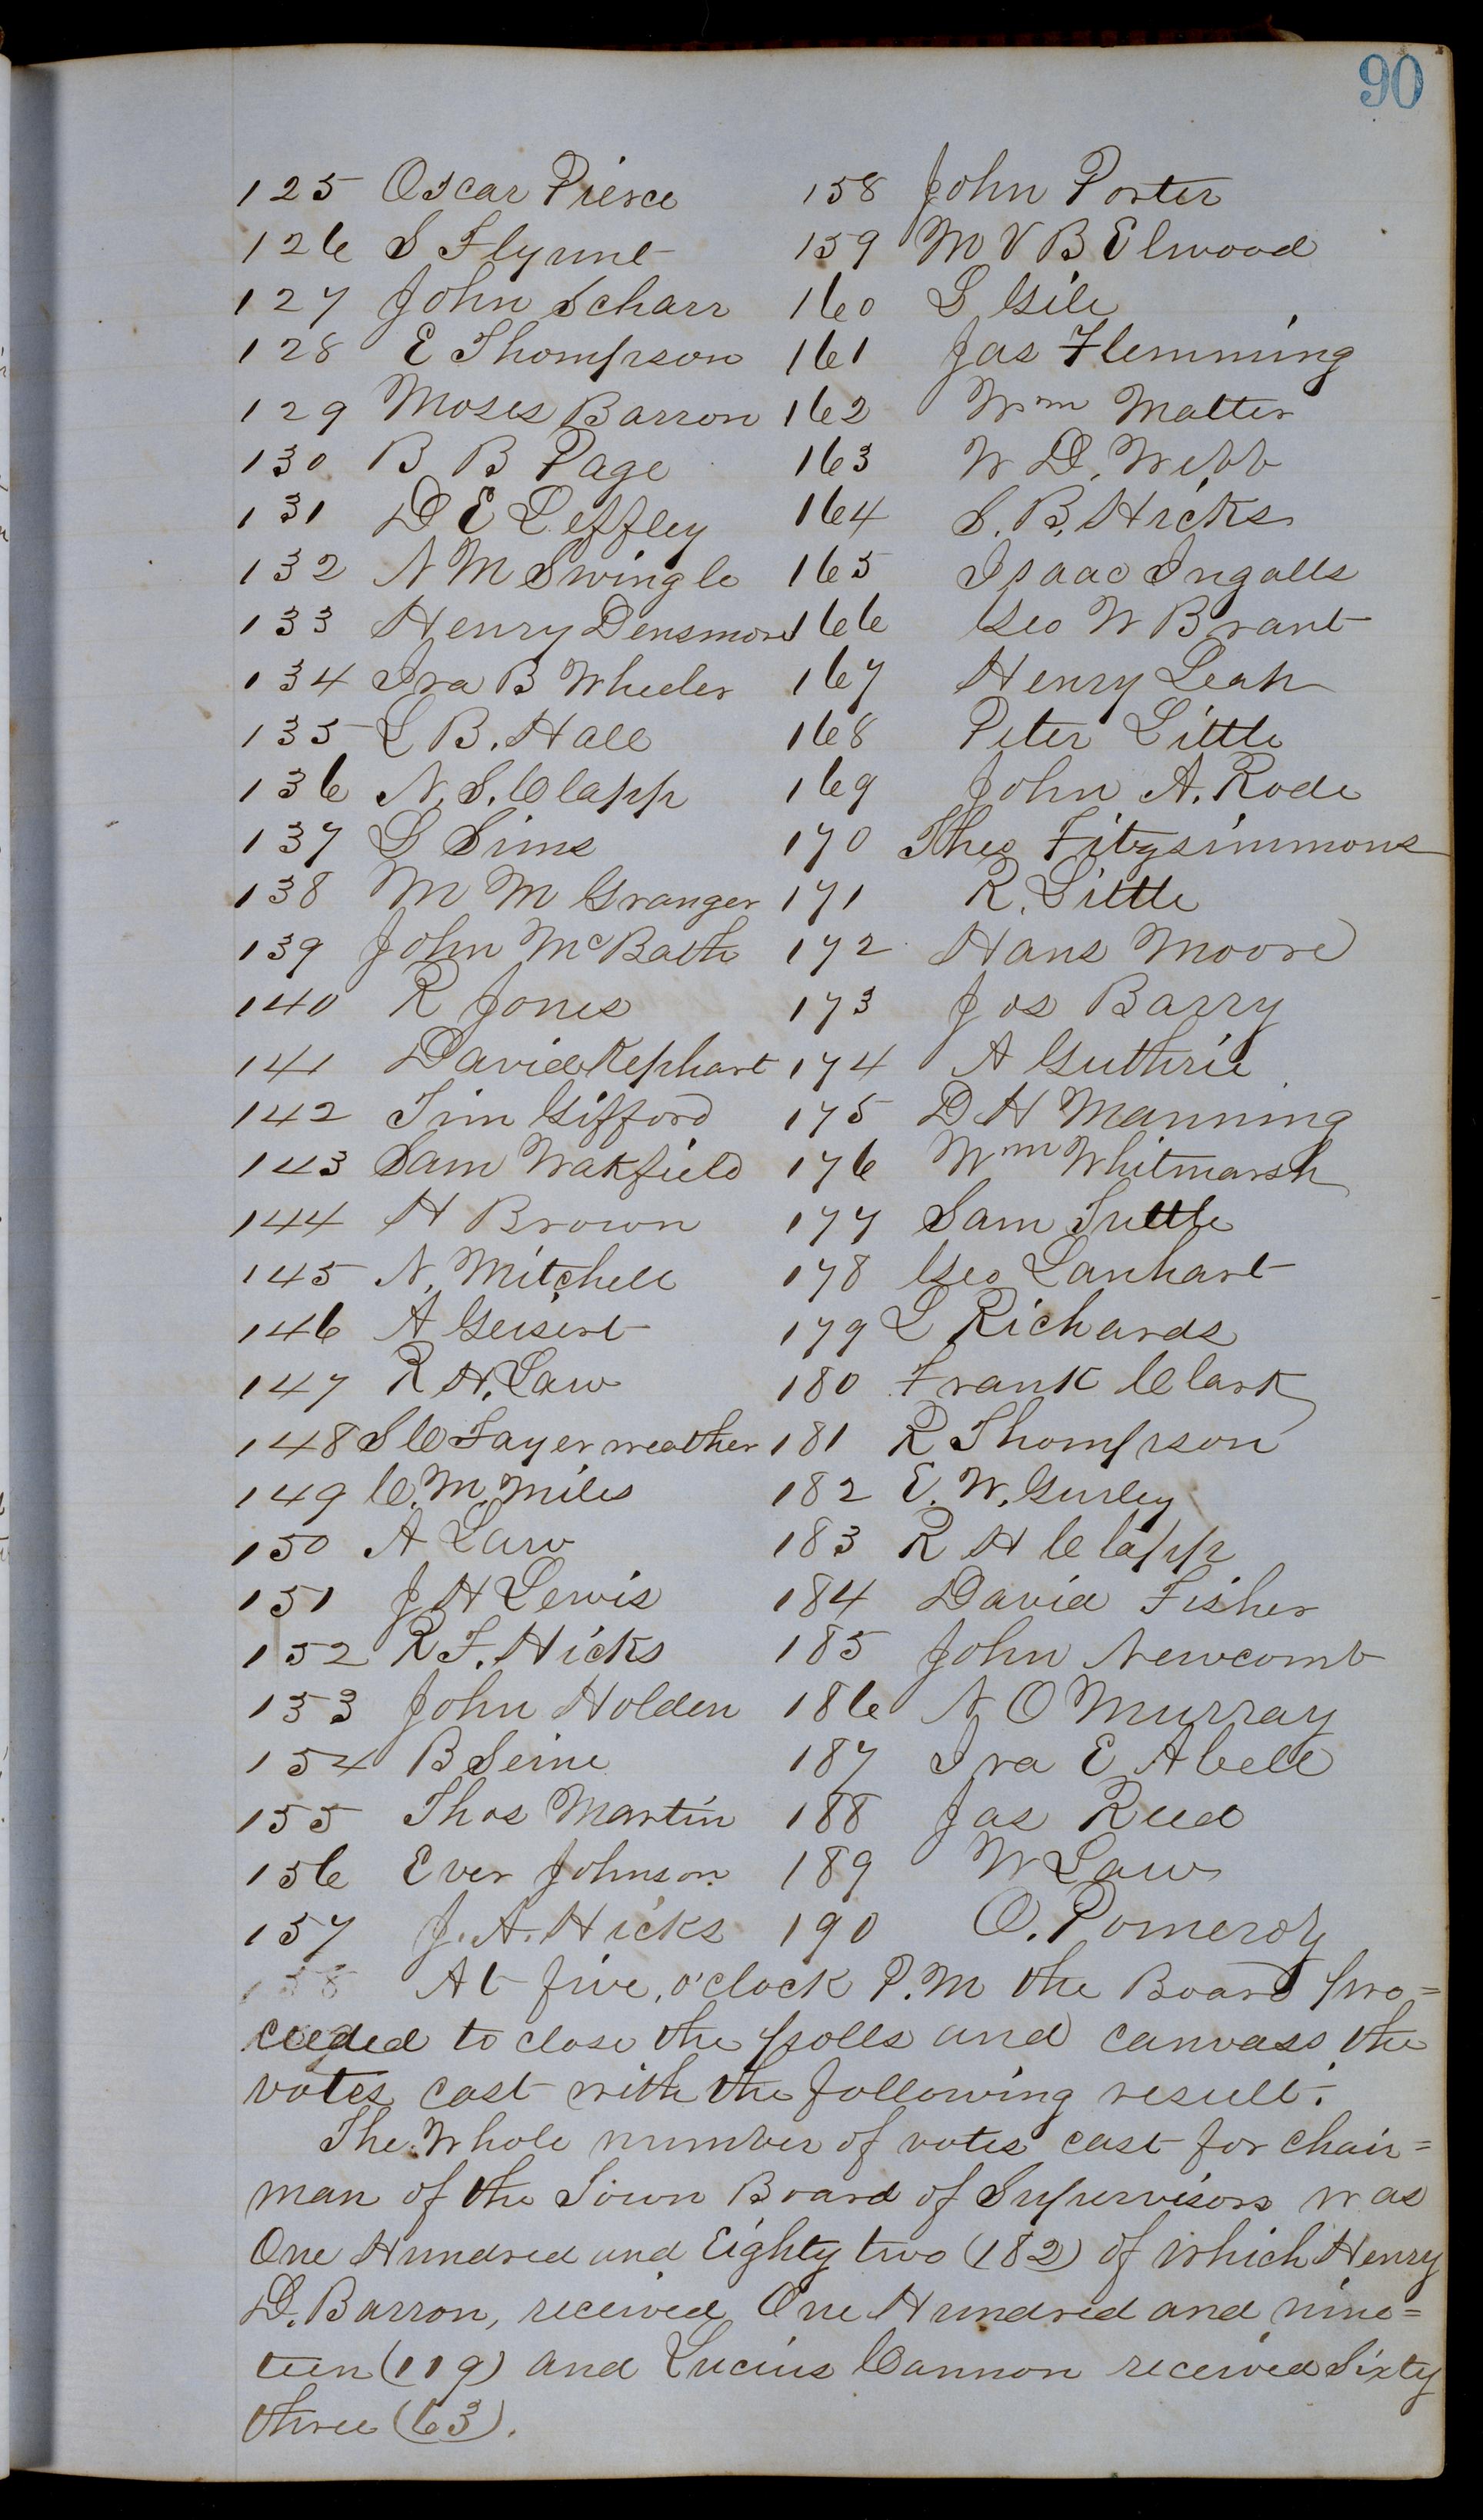 90
125 Oscar Pierce
126 S Flynne
127 John Scharr
128 E Thompson
129 Moses Barron
130 B B Page
131 D E Leffley
132 N M Swingle
133 Henry Densmore
134 Ira B Wheeler
135 L B. Hall
136 N. S. Clapp
137 S Sims
138 M M Granger
139 John McBath
140 R Jones
141 David Rephart
142 Tim Gifford
143 Sam Wakfield
144 H Brown
145 N. Mitchell
146 A Geisert
147 R H. Law
148 S C Fayerweather
149 C. M. Miles
150 A Law
151 J H Lewis
152 R F. Hicks
153 John Holden
154 B Seine
155 Thos Martin
156 Ever Johnson
157 J. A. Hicks
158 John Porter
159 M V B Elwood
160 S Gile
161 Jas Flemming
162 Wm Matter
163 W D. Webb
164 S. B. Hicks
165 Isaac Ingalls
166 Geo W Brant
167 Henry Leah
168 Peter Little
169 John A. Rode
170 Theo Fitzsimmons
171 R. Little
172 Hans Moore
173 Jos Barry
174 A Guthrie
175 D H Manning
176 Wm Whitmarsh
177 Sam Tuttle
178 Geo Lanhart
179 L Richards
180 Frank Clark
181 R Thompson
182 E. W. Gurley
183 R H Clapp
184 David Fisher
185 John Newcomb
186 N O Murray
187 Ira E Abell
188 Jas Reed
189 W Law
190 O. Pomeroy
158 At five, o'clock P.M the Board pro=
ceeded to close the polls and canvass the
votes cast with the following result.
The Whole number of votes cast for chair=
man of the Town Board of Supervisors was
One Hundred and Eighty two (182) of which Henry
D. Barron, received One Hundred and nine=
teen (119) and Lucius Cannon received Sixty
three (63).